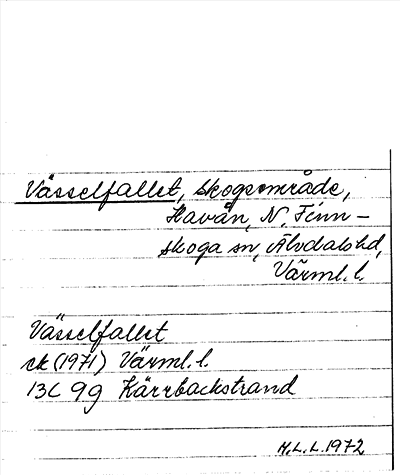 Vässelfallet, skogsområde,
Havån, N. Finn-
skoga sn, Älvdals hd,
Värml. l.
Vässelfallet
ek (1971) Värml. l.
13C 9g Kärrbackstrand
H.L.L. 1972